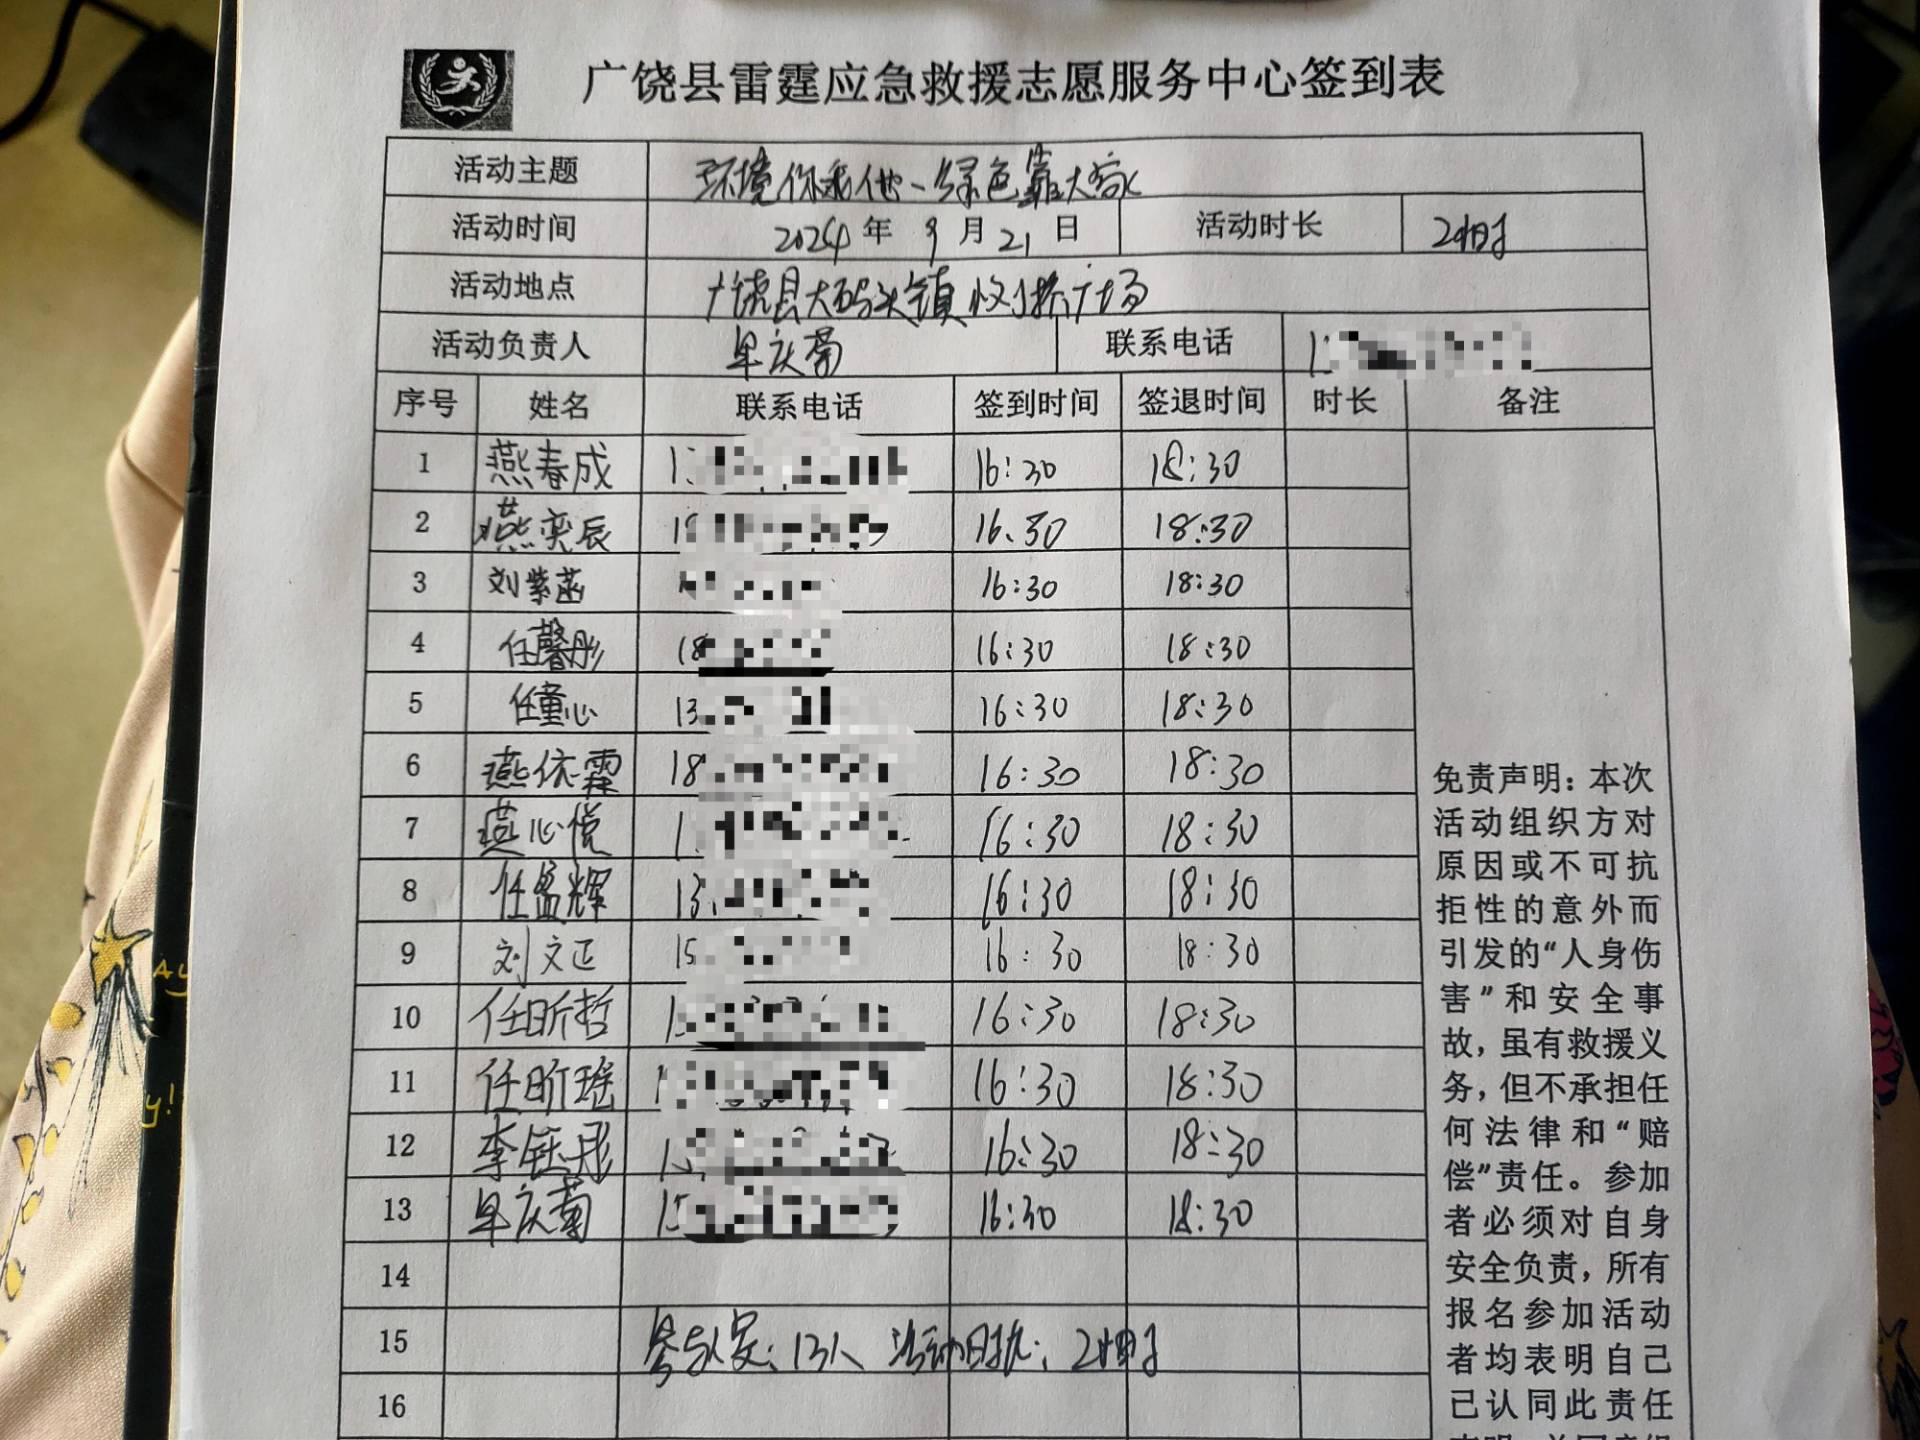 广饶县雷霆应急救援志愿服务中心签到表
活动主题 环境你我他一绿色靠大家
活动时间 2024年 9月 21日 活动时长 2小时
活动地点 广饶县大码头镇 广场
活动负责人 庆菊 联系电话 1
序号 姓名 联系电话 签到时间 签退时间 时长 备注
1 燕春成 1 16:30 18:30
2 燕奕辰 1 16.30 18:30
3 刘紫菡 16:30 18:30
4 任馨彤 18 16:30 18:30
5 任童心 13 16:30 18:30
6 燕依霖 18 16:30 18:30
7 燕心悦 1 16:30 18:30
8 任孟辉 13 16:30 18:30
9 刘文正 15 16:30 18:30
10 任昕哲 1 16:30 18:30
11 任昕瑶 1 16:30 18:30
12 李钰彤 1 16:30 18:30
13 庆菊 15 16:30 18:30
14
15 参与人员:13人 活动时长:2小时
16
免责声明：本次
活动组织方对
原因或不可抗
拒性的意外而
引发的“人身伤
害”和安全事
故，虽有救援义
务，但不承担任
何法律和“赔
偿”责任。参加
者必须对自身
安全负责，所有
报名参加活动
者均表明自己
已认同此责任